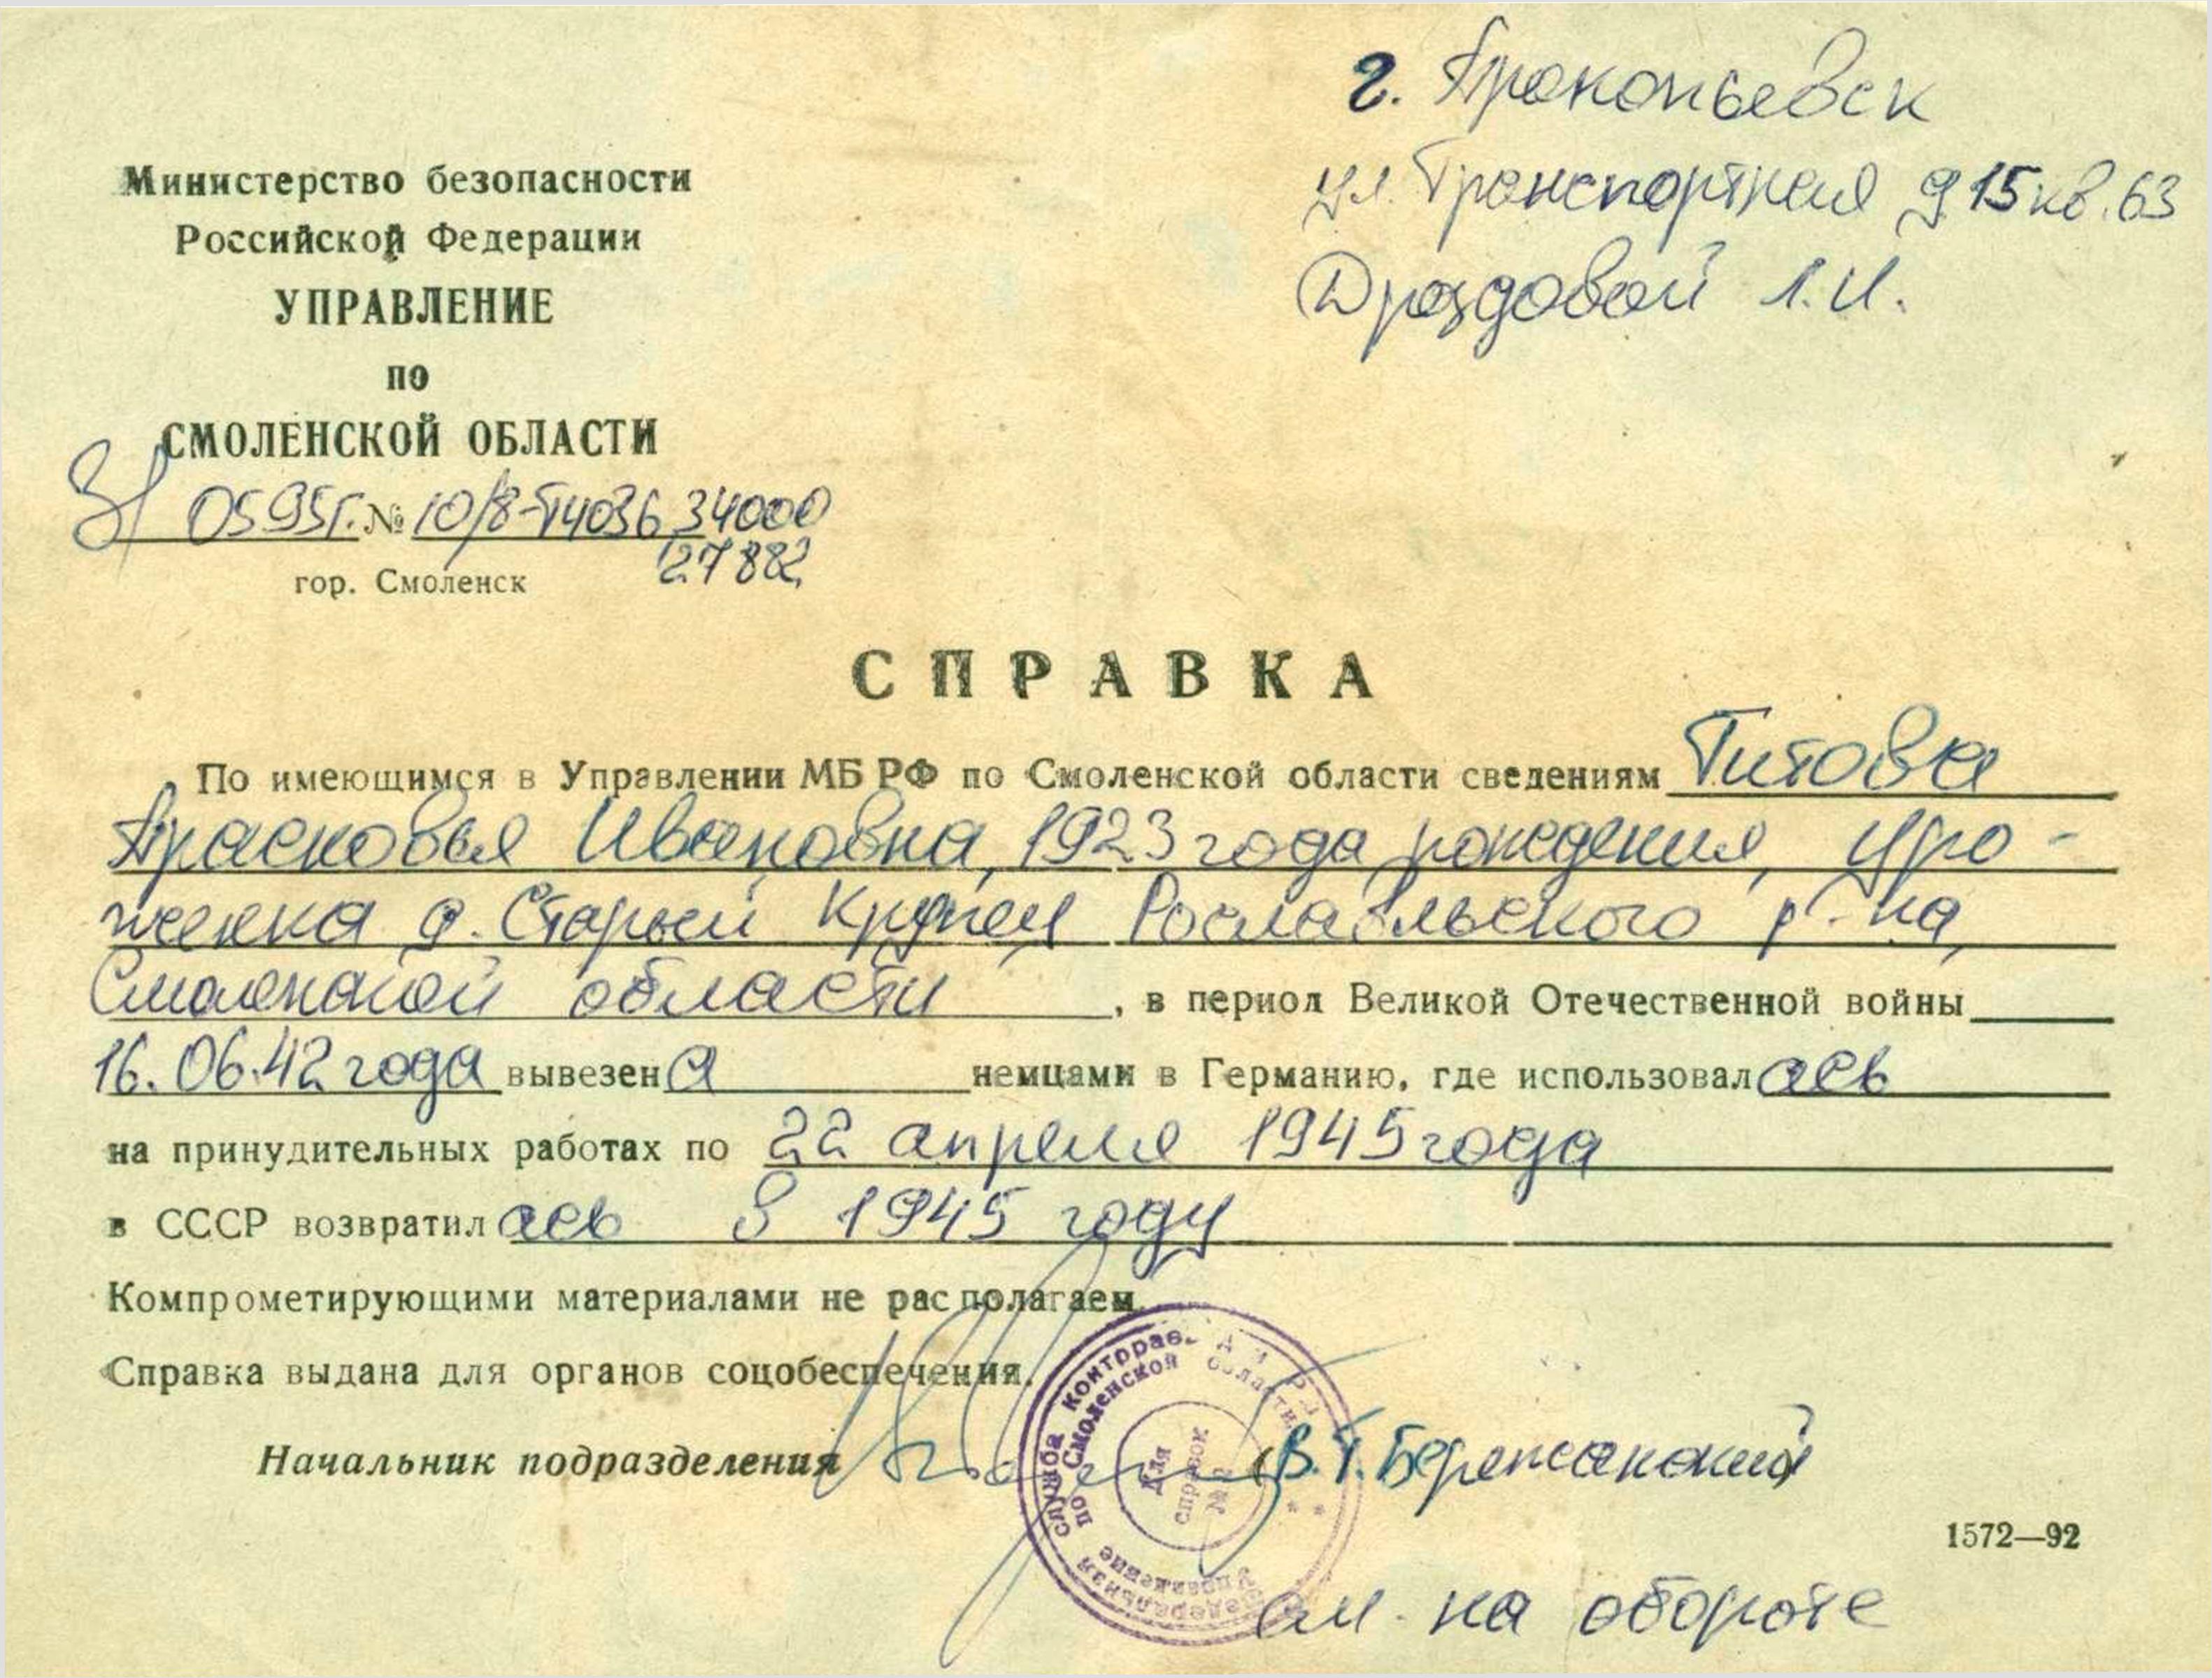 г. Прокопьевск
ул. Транспортная д 15 кв. 63
Дроздовой Л.И.
Министерство безопасности
Российской Федерации
УПРАВЛЕНИЕ
по
СМОЛЕНСКОЙ ОБЛАСТИ
31 05 95г. № 10/8-Т4036 34000
27882
гор. Смоленск
СПРАВКА
По имеющимся в Управлении МБ РФ по Смоленской области сведениям Титова
Прасковья Ивановна, 1923 года рождения, уро-
женка д. Старый Крупец Рославльского р-на,
Смоленской области, в период Великой Отечественной войны
16.06.42 года вывезена немцами в Германию, где использовалась
на принудительных работах по 22 апреля 1945 года
в СССР возвратилась в 1945 году
Компрометирующими материалами не располагаем.
Справка выдана для органов соцобеспечения.
Начальник подразделения В.Т. Бережанский
Федеральная служба контрразведки РФ
Управление по Смоленской области
Для
справок
№ 2
1572—92
см. на обороте